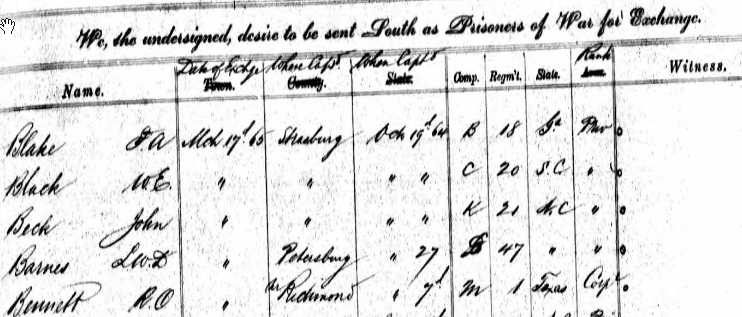 We, the undersigned, desire to be sent South as Prisoners of War for Exchange.
Name. Date of Exchge Town. Where Captd. County. When Captd State. Comp. Regm't. State. Rank Witness.
Blake F. A Mch 17' 65 Strasburg Oct 19' 64 B 18 Ga Priv
Black W. E. " " " " C 20 S. C "
Beck John " " " " K 21 N. C "
Barnes L. W. D " Petersburg " 27 B 47 " "
Bennett R. O " Nr Richmond " 7' M 1 Texas Corp